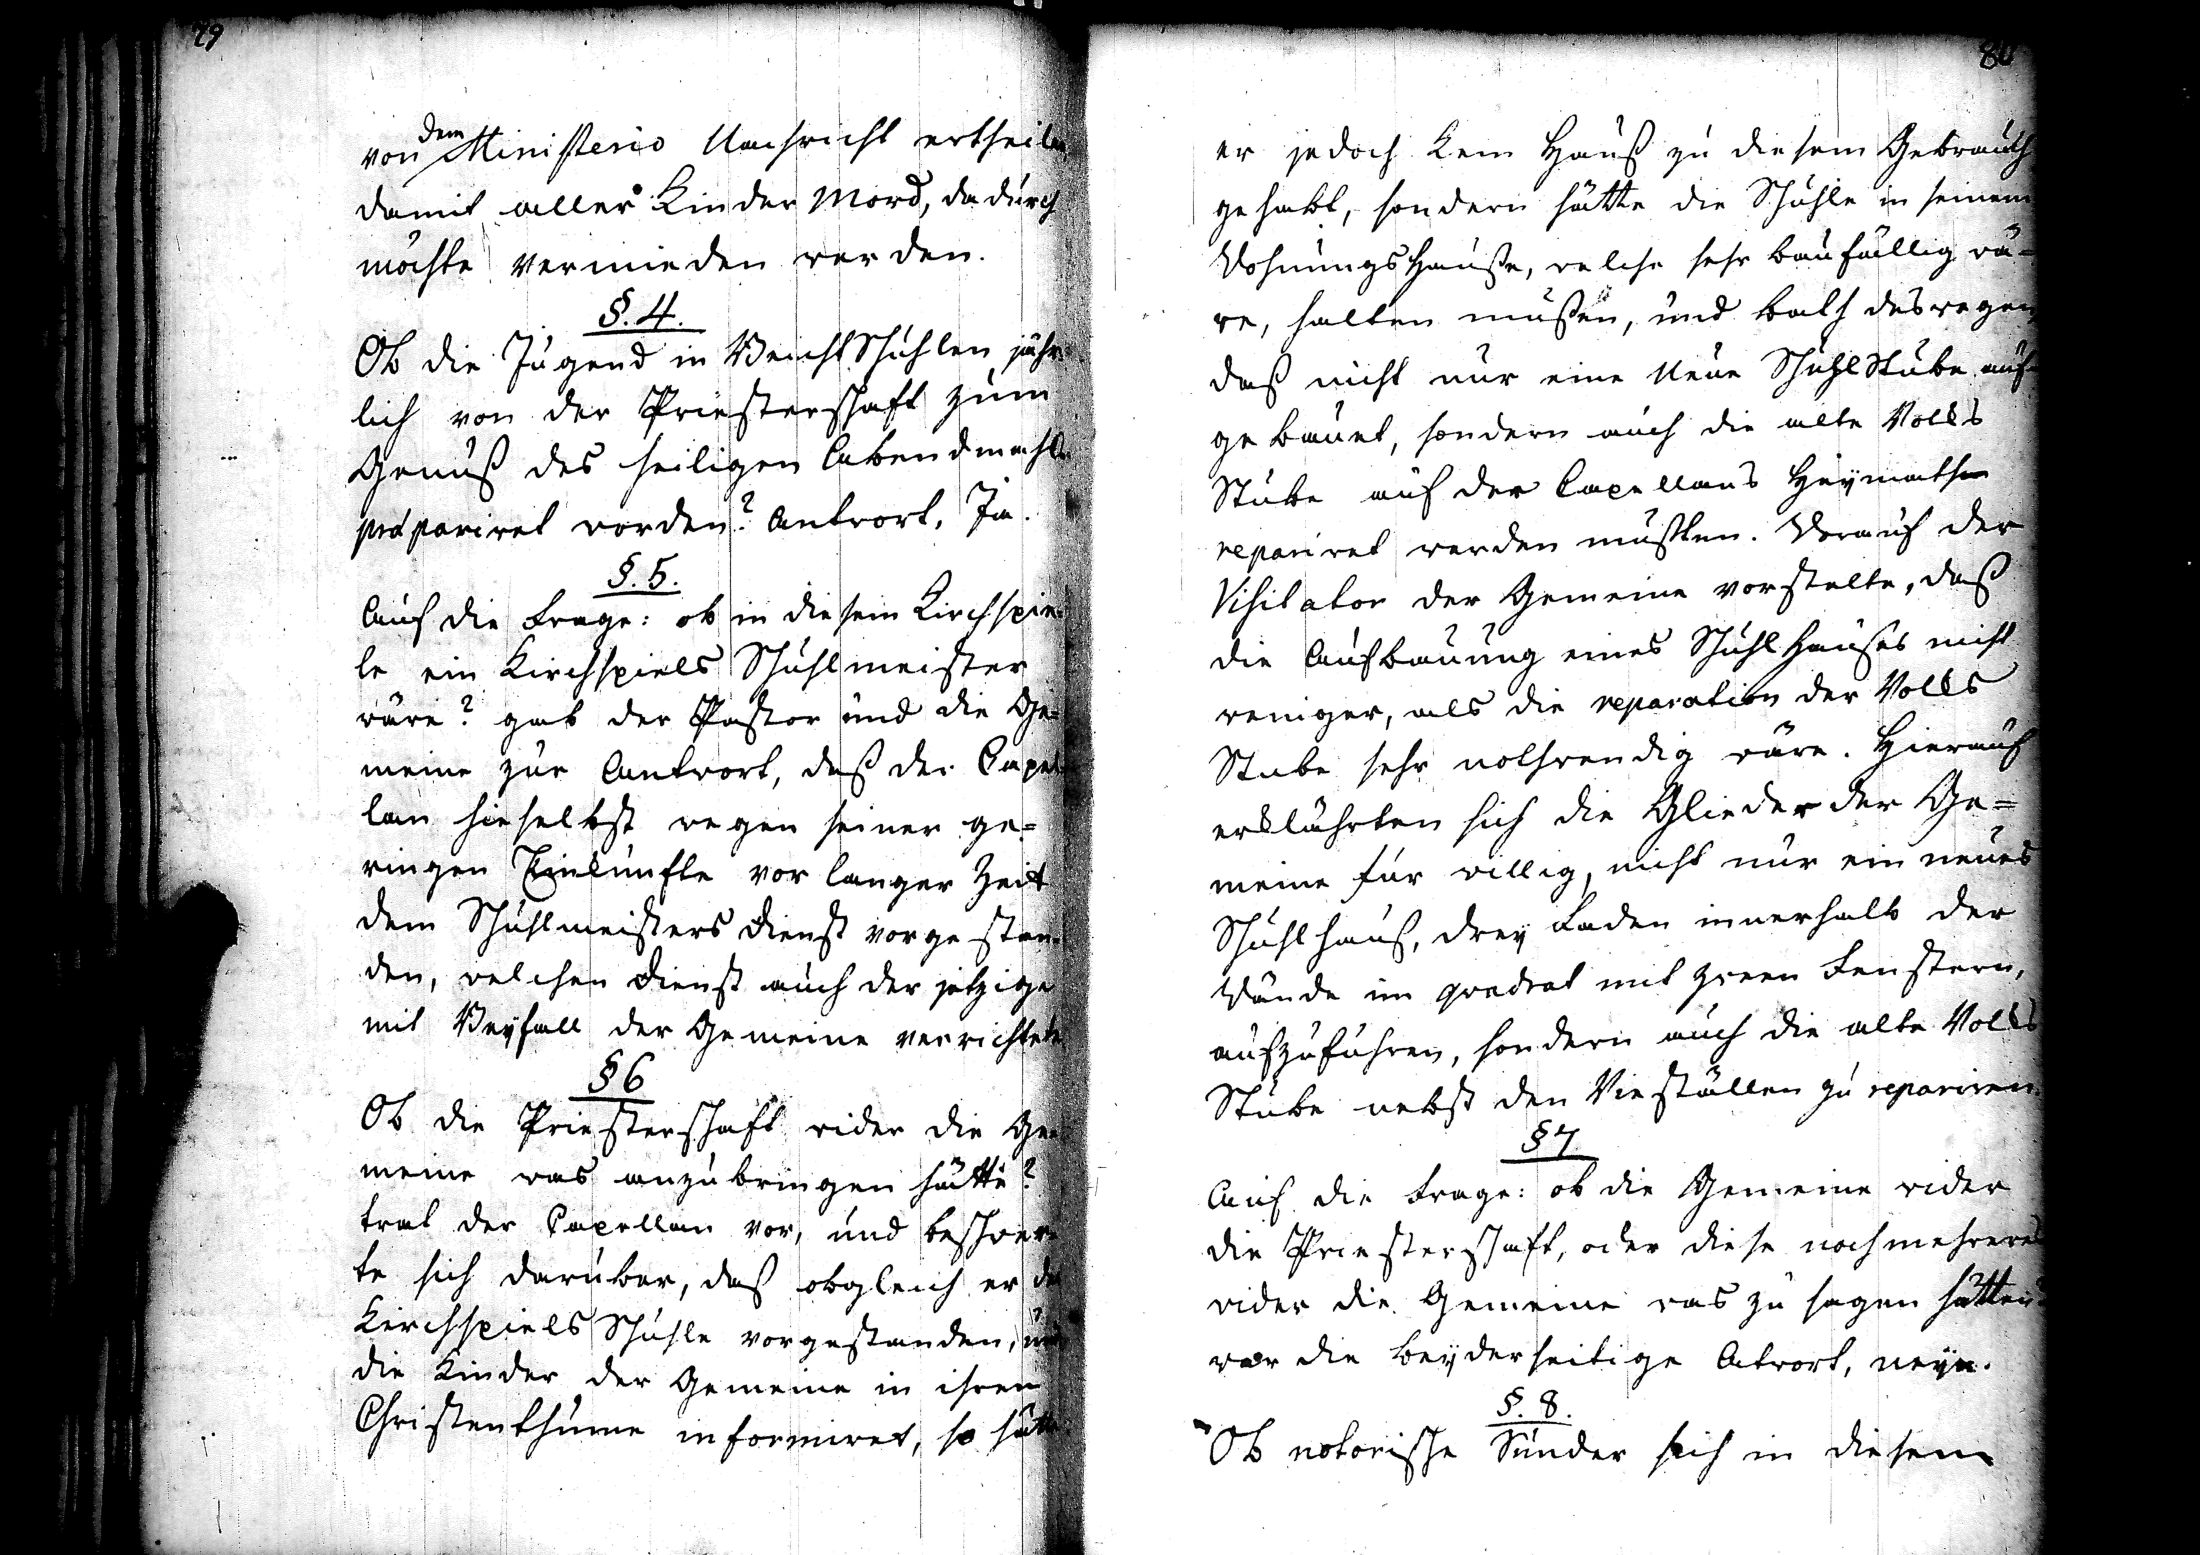 79
von dem Ministerio Nachricht ertheilen
damit aller Kinder Mord, dadurch
möchte vermieden werden.
§. 4.
Ob die Jugend in Beicht Schuhlen jähr-
lich von der Priesterschaft zum
Genuß des heiligen Abendmahls
præpariret worden? Antwort, Ja.
§. 5.
Auf die Frage: ob in diesem Kirchspie-
le ein Kirchspiels Schuhlmeister
wäre? gab der Pastor und die Ge=
meine zur Antwort, daß der Capel-
lan hieselbst wegen seiner ge=
ringen Einkünfte vor langer Zeit
dem Schuhlmeisters Dienst vorgestan-
den, welchen Dienst auch der jetzige
mit Beyfall der Gemeine verrichtete
§ 6
Ob die Priesterschaft wider die Ge-
meine was anzubringen hätte?
trat der Capellan vor, und beschwer-
te sich darüber, daß obgleich er der
Kirchspiels Schuhle vorgestanden, und
die Kinder der Gemeine in ihren
Christenthume informiret, so hätte
80
er jedoch kein Hauß zu diesem Gebrauch
gehabt, sondern hätte die Schuhle in seinem
Wohnungs Hauße, welche sehr baufällig wä-
re, halten müßen, und bath deswegen
daß nicht nur eine Neue Schuhl Stube auf-
gebauet, sondern auch die alte Volks
Stube auf der Capellans Heymathe
repariret werden müßten. Worauf der
Visitator der Gemeine vorstelte, daß
die Aufbauung eines Schuhl Hauses nicht
weniger, als die reparation der Volks
Stube sehr nothwendig wäre. Hierauf
erklährten sich die Glieder der Ge=
meine für willig, nicht nur ein neues
Schuhlhauß, drey Faden innerhalb der
Wände im qvadrat mit zween Fenstern,
aufzuführen, sondern auch die alte Volks
Stube nebst den Vieställen zu repariren.
§ 7
Auf die Frage: ob die Gemeine wider
die Priesterschaft, oder diese noch mehreres
wider die Gemeine was zu sagen hätten?
war die beyderseitige Atwort, neyn.
§. 8.
Ob notorische Sünder sich in diesem